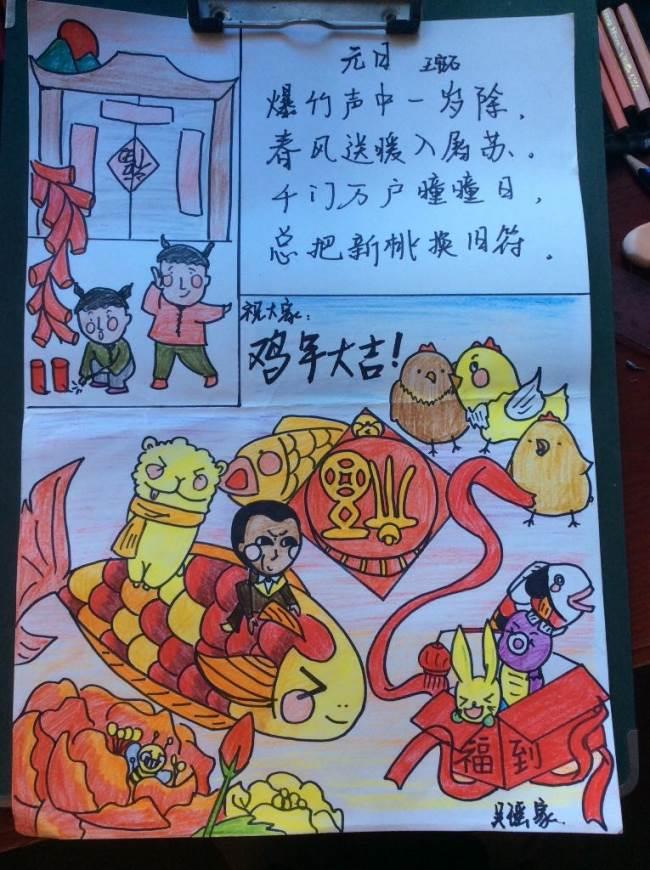 元日 王安石
爆竹声中一岁除，
春风送暖入屠苏。
千门万户瞳瞳日，
总把新桃换旧符。
福
祝大家：
鸡年大吉！
福
福到